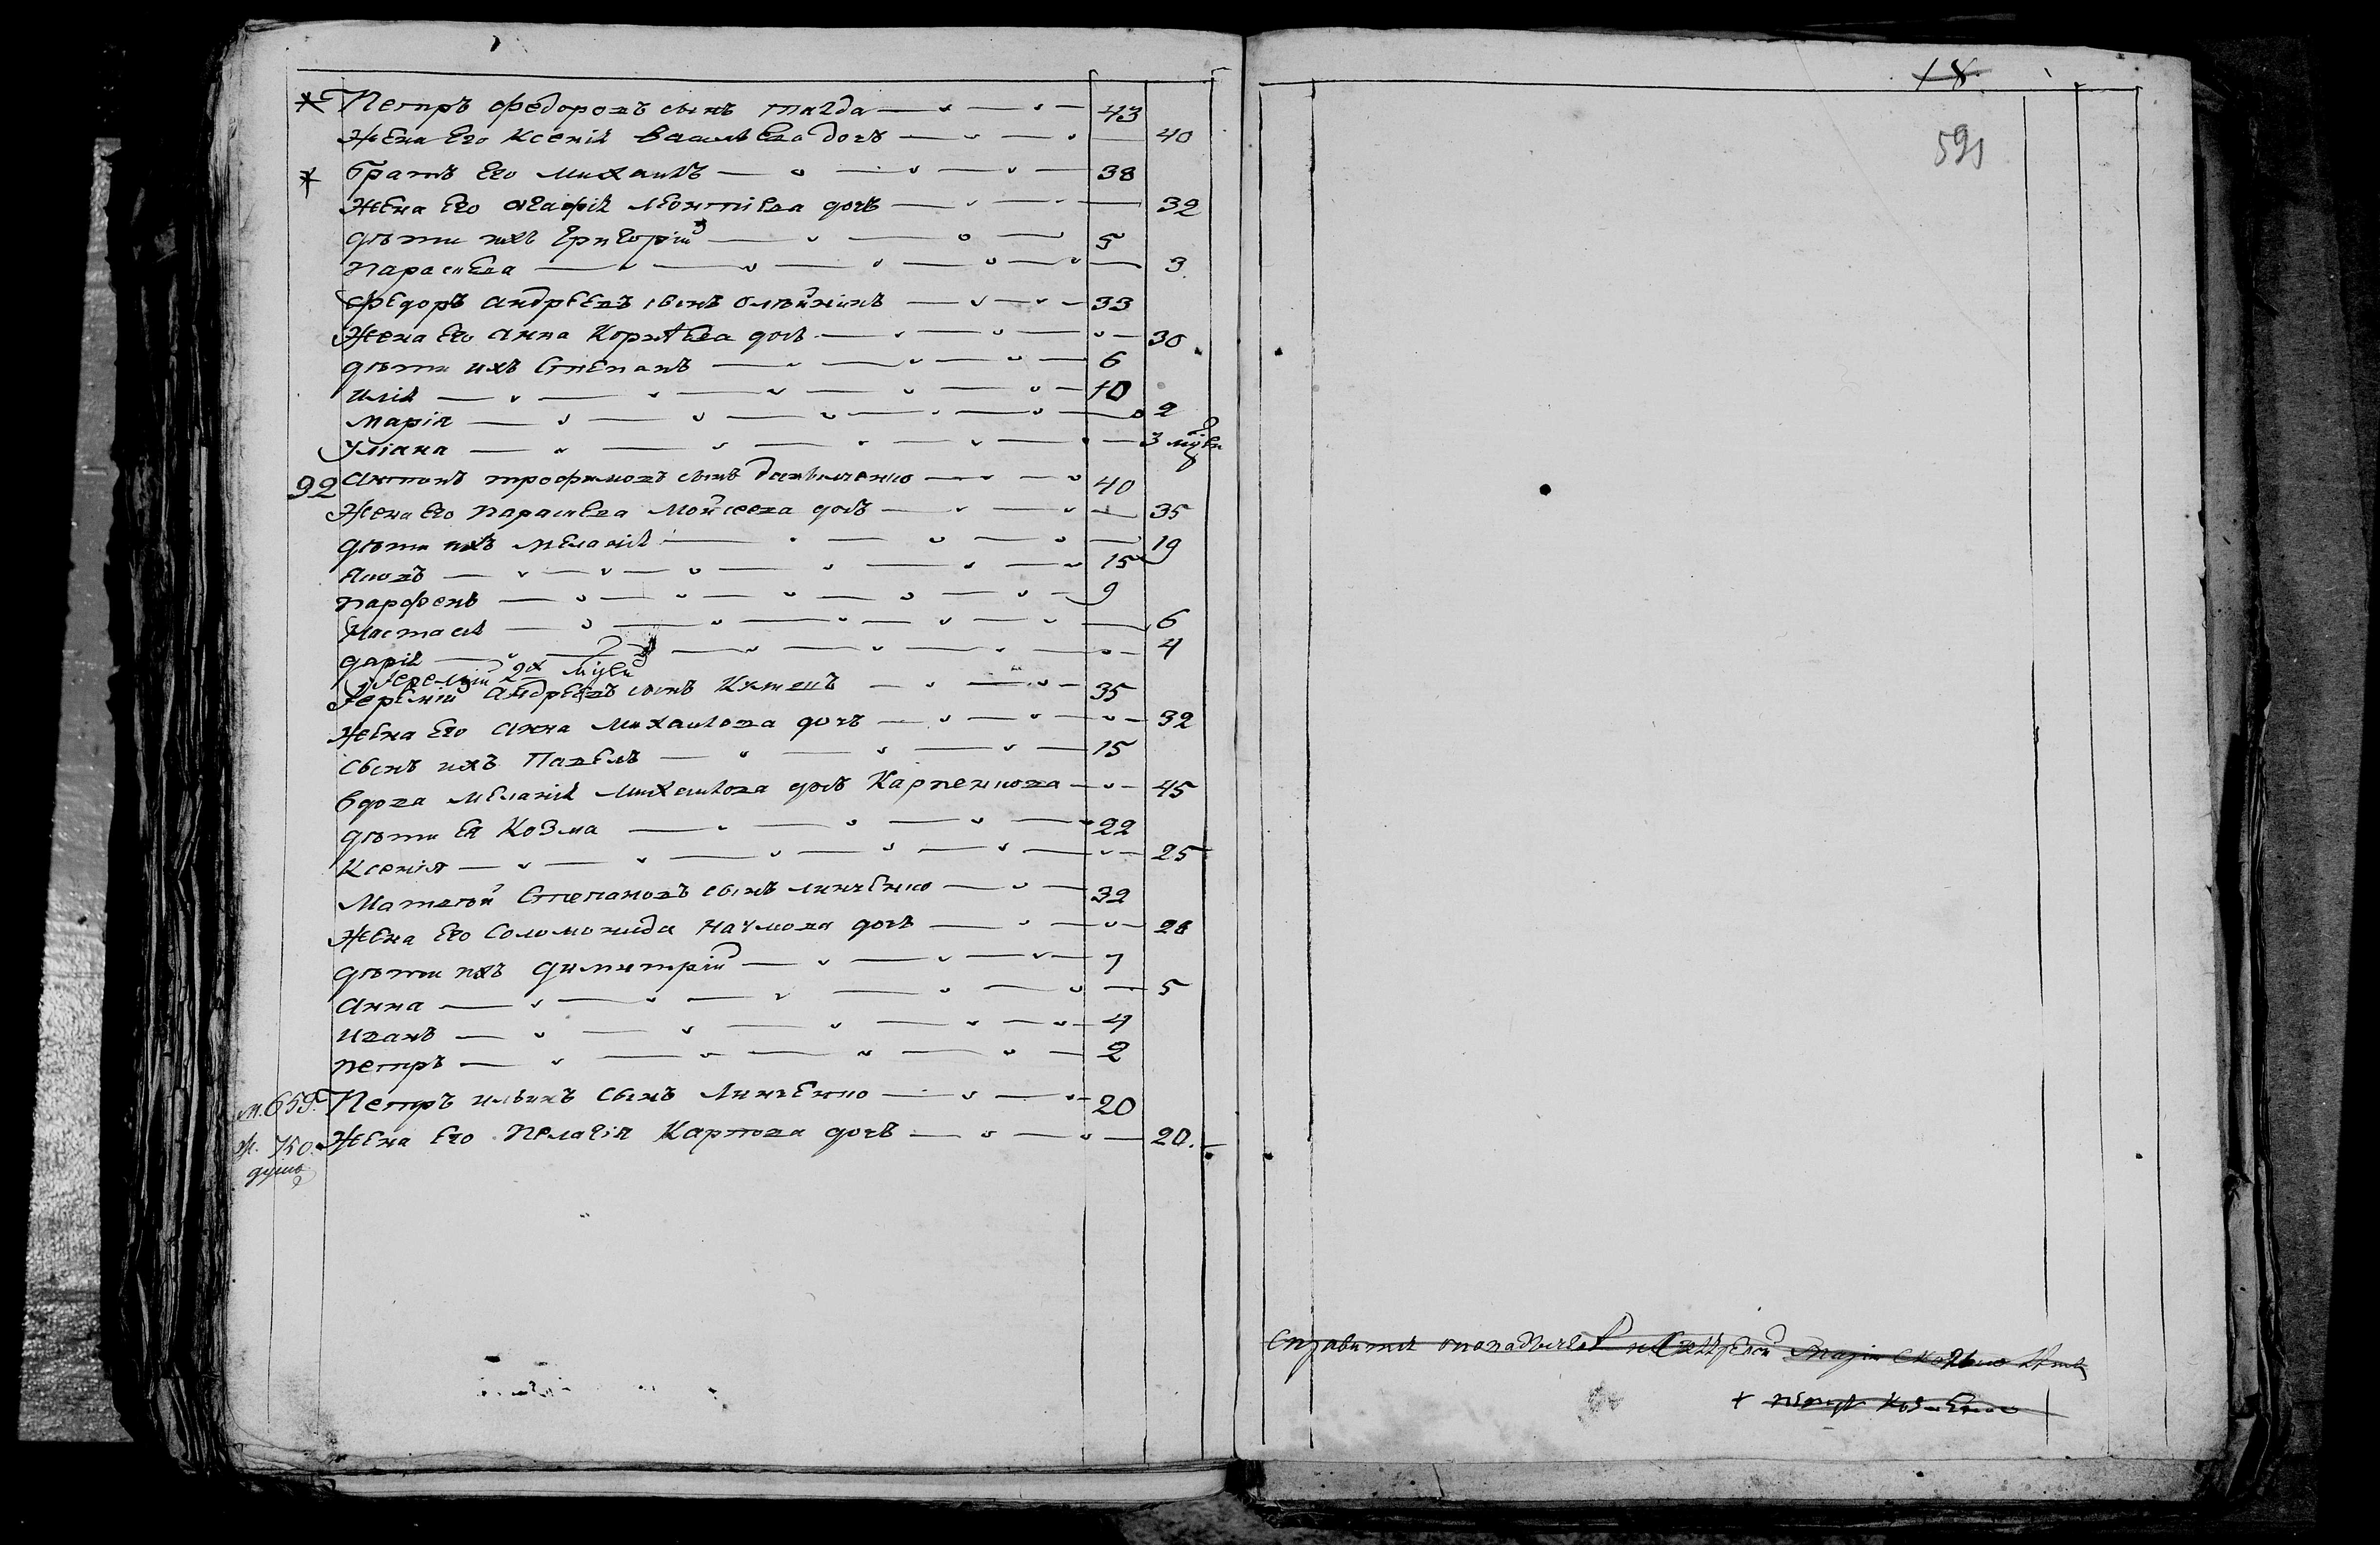 Петръ Федоровъ сынъ Таїда 43
Жена Его Ксенія Васильева дочь 40
Братъ Его Михаилъ 38
Жена Его Агафія Леонтіева дочь 32
дѣти ихъ Григорій 5
Параскева 3
Федоръ Андреевъ сынъ Олѣйникъ 33
Жена Его Анна Корнѣева дочь 30
дѣти ихъ Степанъ 6
Илія 10
Марія 2
Уліана 3 м҃ца
92 Антонъ Трофимовъ сынъ 40
Жена Его Парасковea Мойсеева дочь 35
дѣти ихъ Меланія 19
Яковъ 15
Парфенъ 9
Настасія 6
Дарія 4
Іеремій 2х
Іеремій Андреевъ сынъ 35
Жена Его Анна Михаилова дочь 32
Сынъ ихъ Павелъ 15
Вдова Меланія Михаилова дочь Карпенкова 45
дѣти Ея Козма 22
Ксенія 25
Матвѣй Степановъ сынъ Линченко 32
Жена Его Соломонида Наумова дочь 28
дѣти ихъ Димитрій 7
Анна 5
Иванъ 4
Петръ 2
м. 659. Петръ Ильинъ сынъ Линченко 20
ж. 750. Жена Его Пелагія Карпова дочь 20.
душъ
18
591